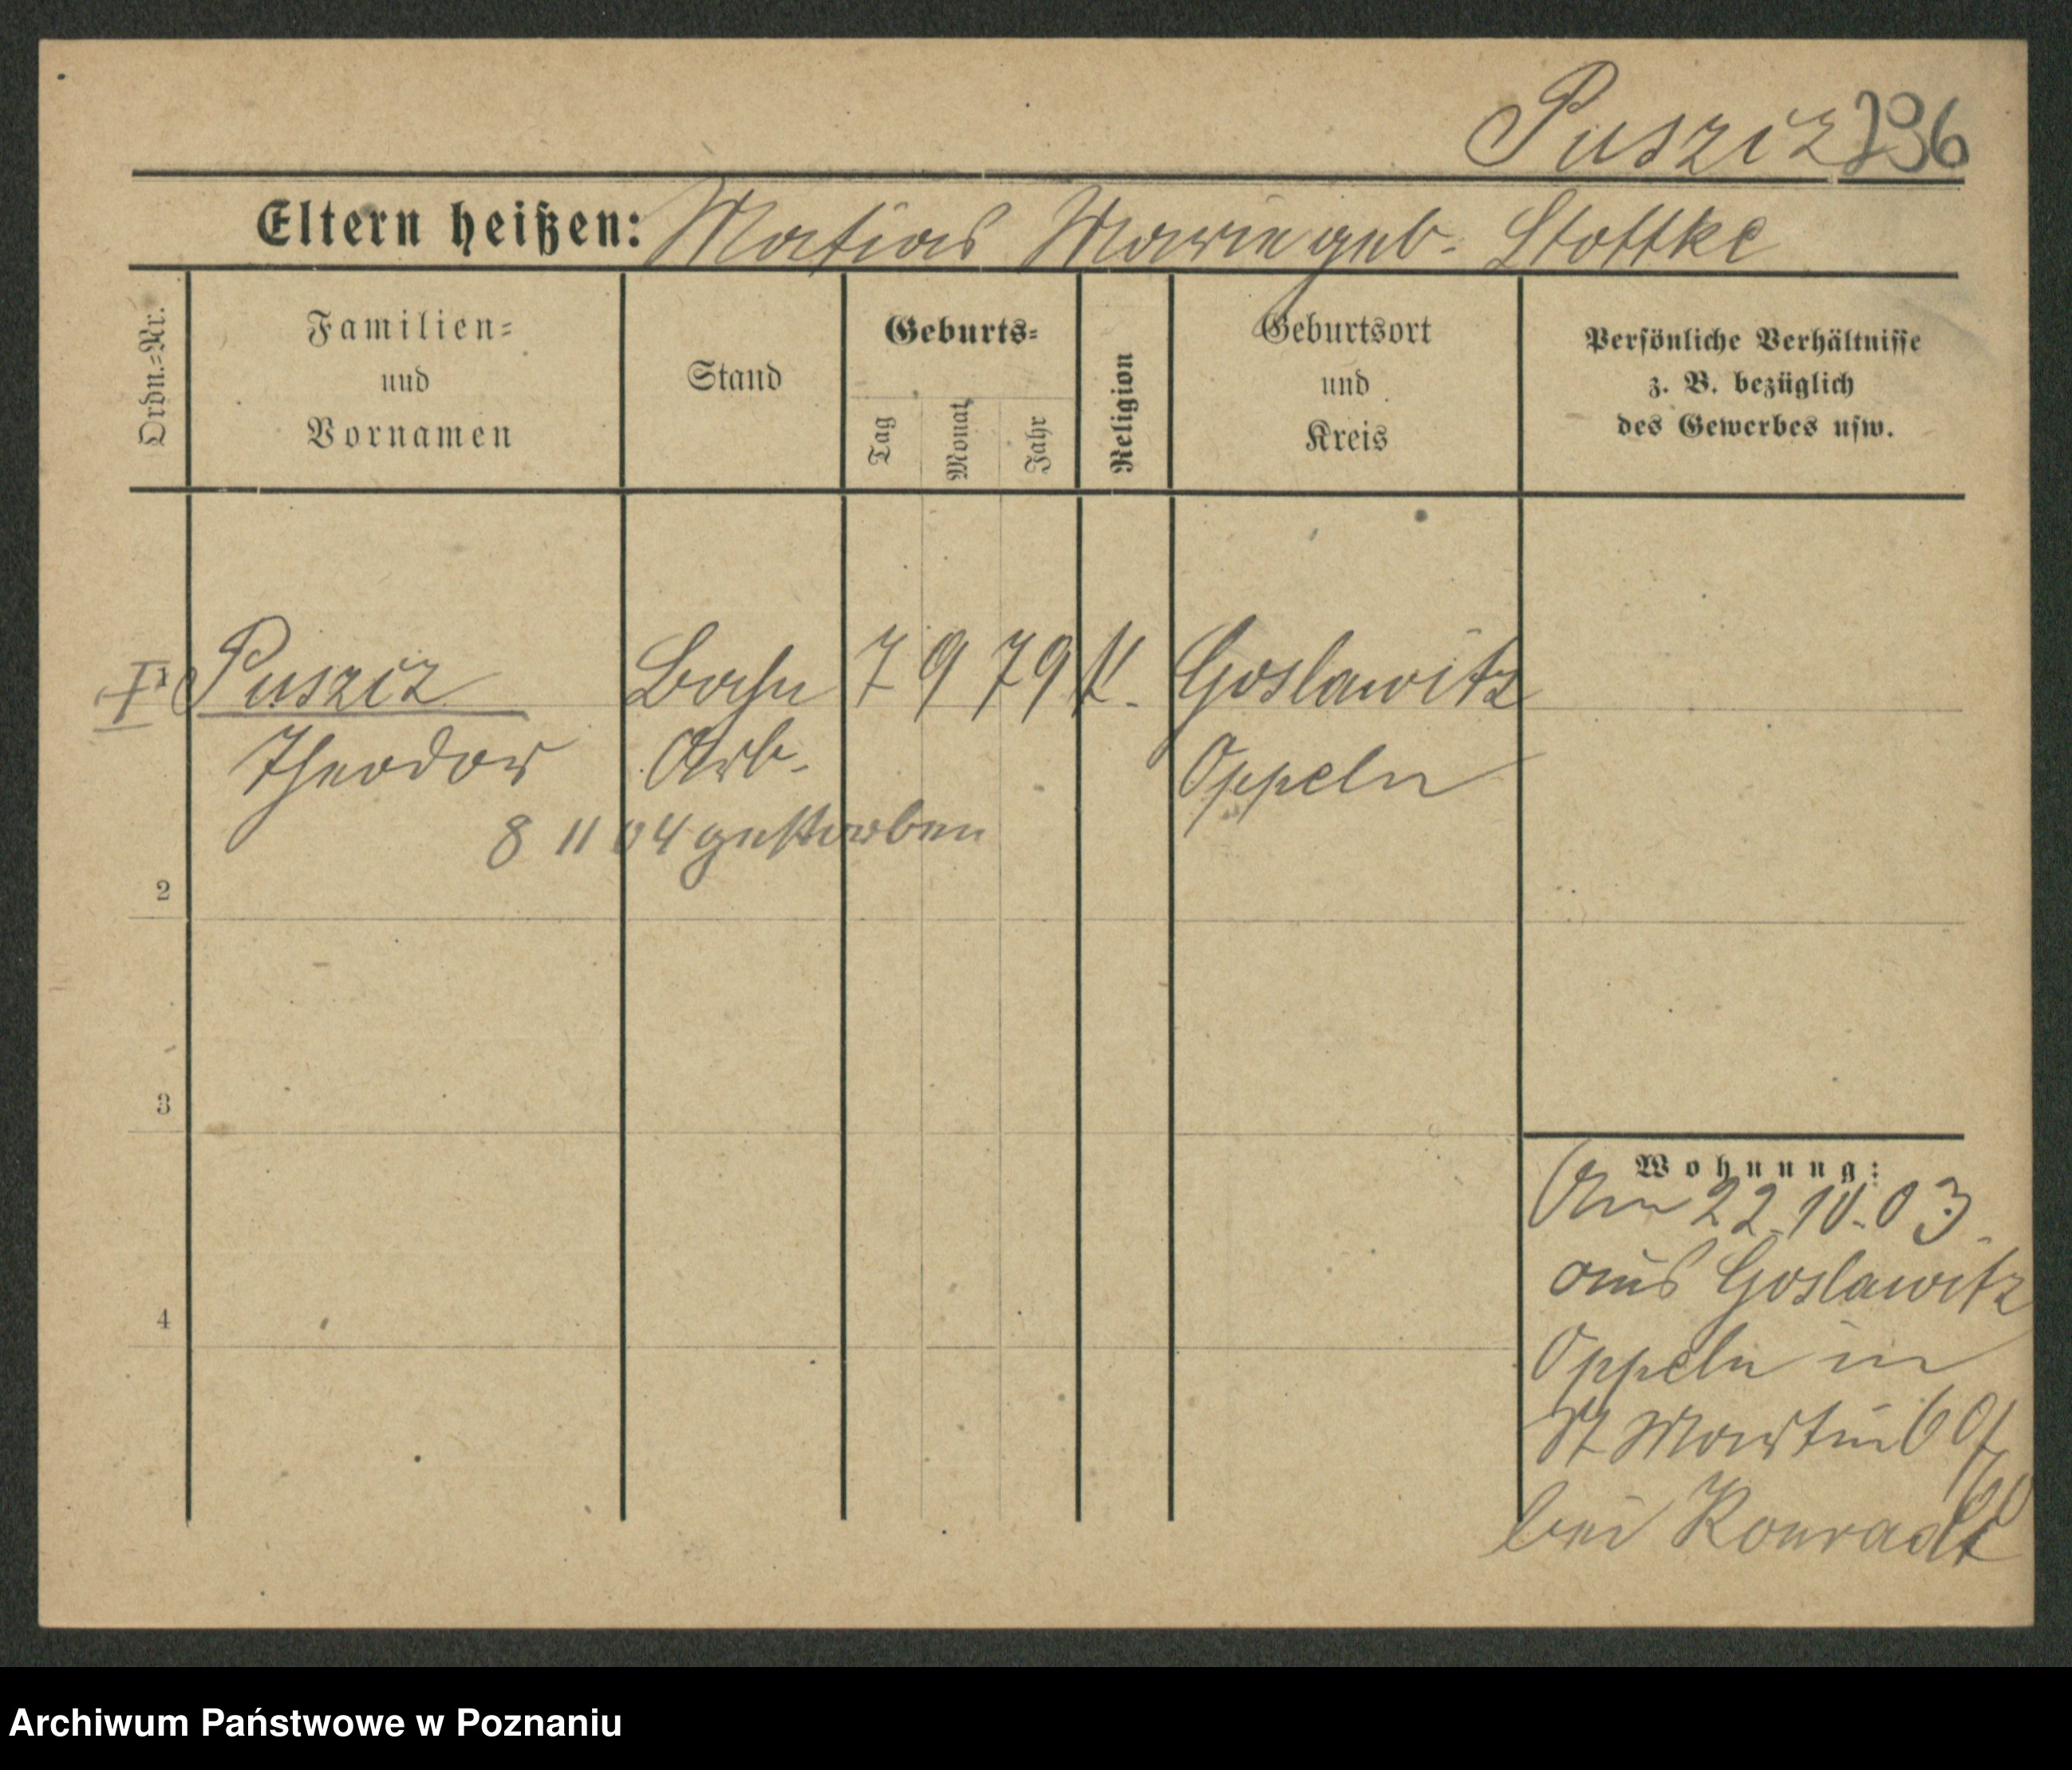 Pusziz 236
Eltern heißen: Matias Marie geb. Stottke
Ordn.=Nr.
Familien=
und
Vornamen
Stand
Geburts=
Tag
Monat
Jahr
Religion
Geburtsort
und
Kreis
Persönliche Verhältnisse
z. B. bezüglich
des Gewerbes usw.
1 Pusziz Bahn 7 9 79 K. Goslawitz
Theodor Arb. Oppeln
8 11 04 gestorben
2
3
4
Wohnung:
Am 22.10.03.
aus Goslawitz
Oppeln in
St Martin 60/
bei Konradt
Archiwum Państwowe w Poznaniu